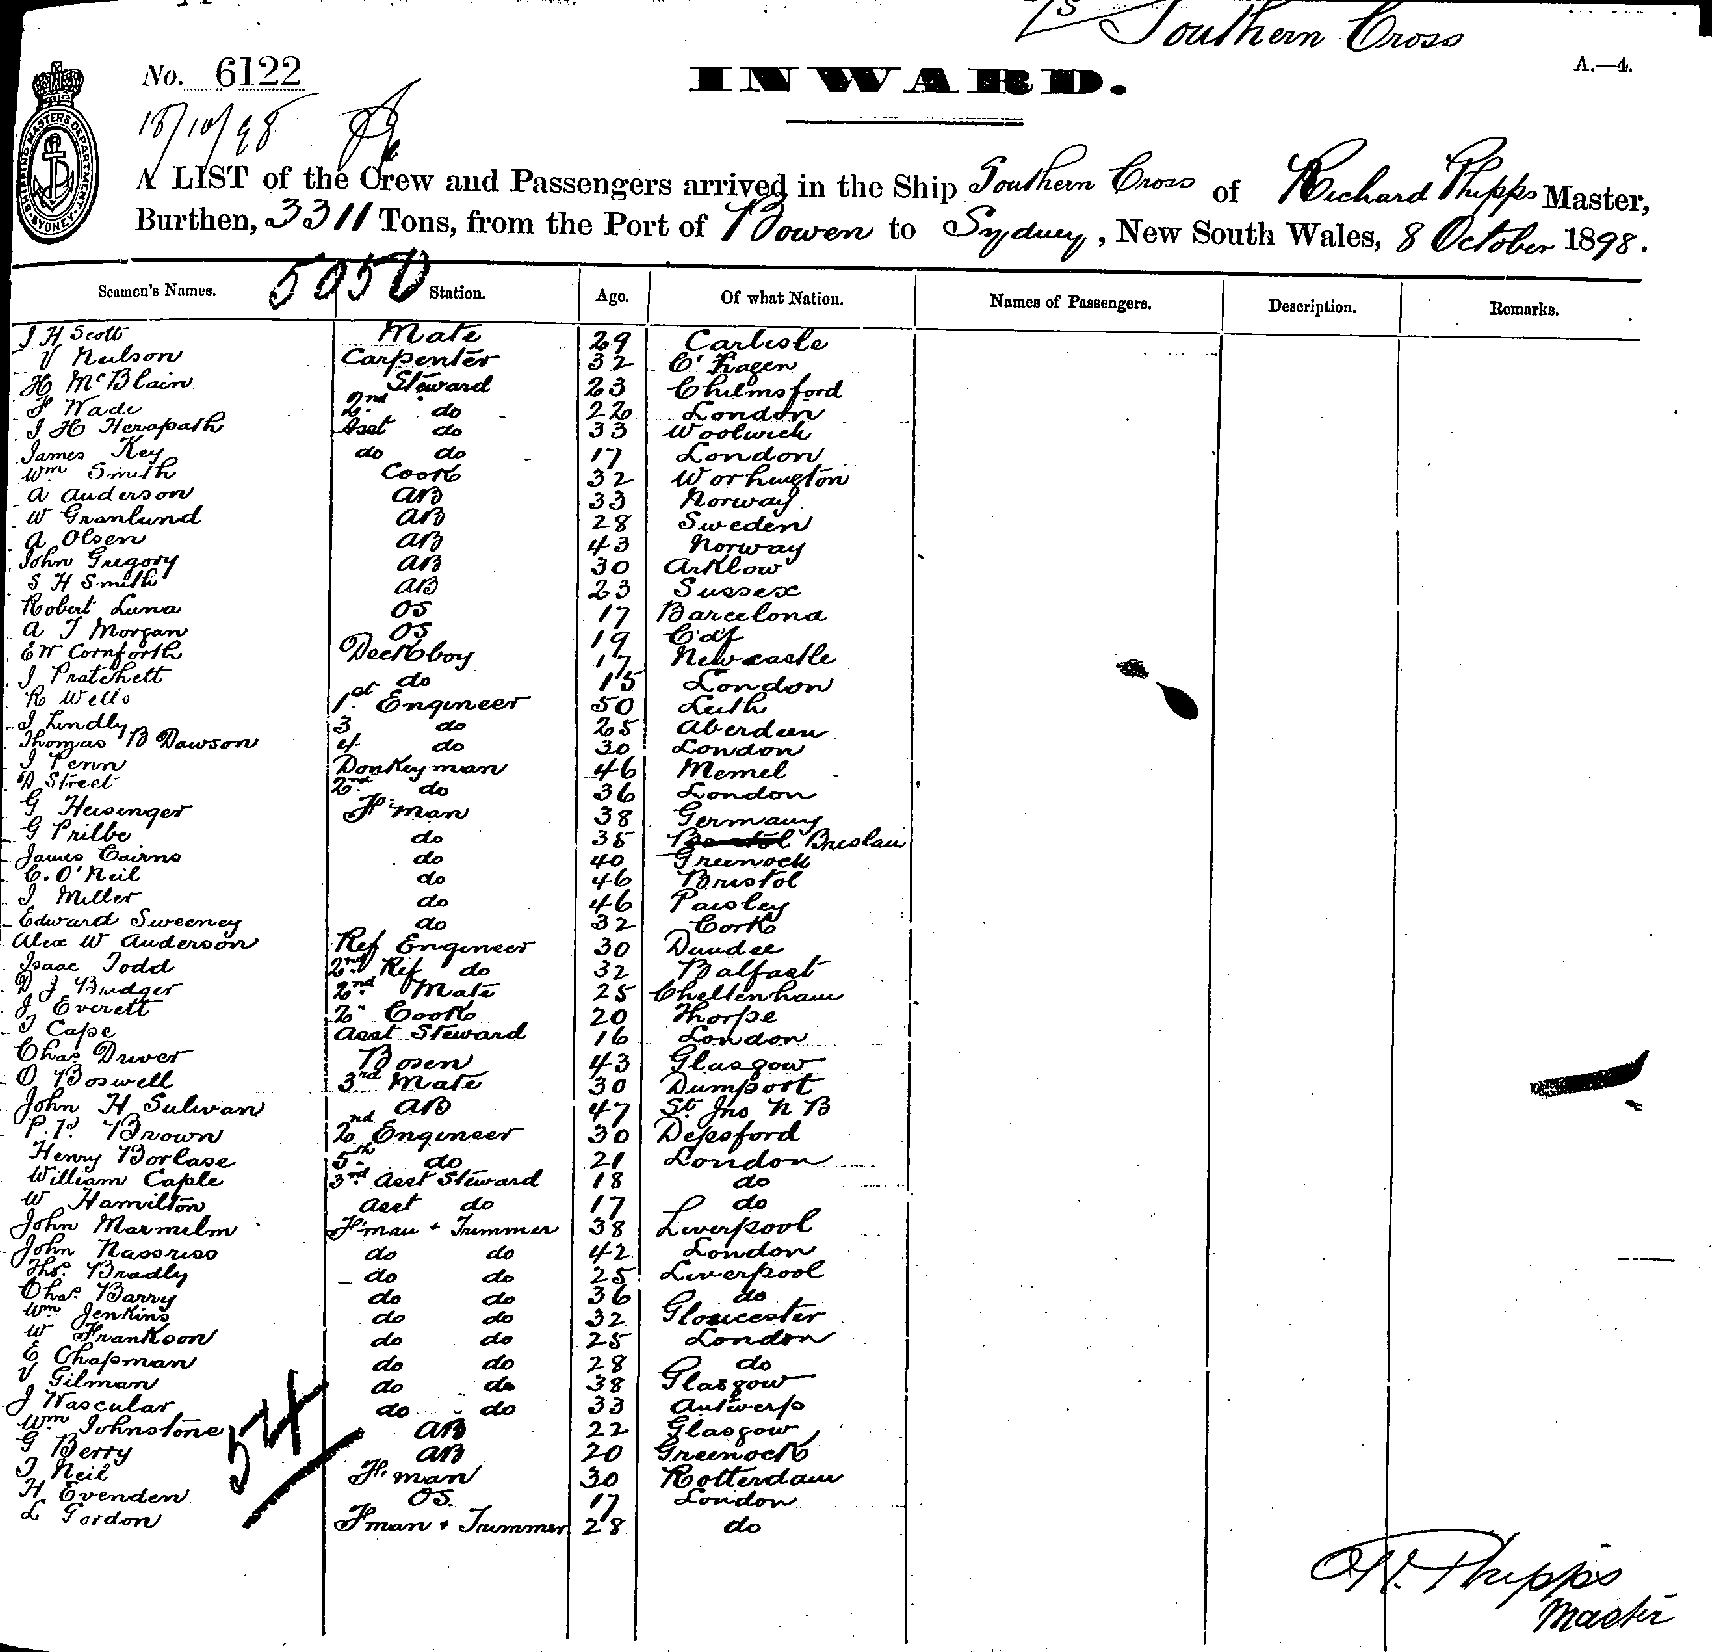 SS Southern Cross
No. 6122
INWARD.
A.—4.
18/10/98
SHIPPING MASTERS DEPARTMENT SYDNEY
A LIST of the Crew and Passengers arrived in the Ship Southern Cross of Richard Phipps Master,
Burthen, 3311 Tons, from the Port of Bowen to Sydney, New South Wales, 8 October 1898.
5050
Seamen's Names. Station. Age. Of what Nation. Names of Passengers. Description. Remarks.
J H Scott Mate 29 Carlisle
V Neilson Carpenter 32 C'hagen
H McBlain Steward 23 Chelmsford
F Wade 2nd do 22 London
J H Herapath Asst do 33 Woolwich
James Key do do 17 London
Wm Smith Cook 32 Workington
A Anderson AB 33 Norway
W Granlund AB 28 Sweden
A Olsen AB 43 Norway
John Gregory AB 30 Arklow
S H Smith AB 23 Sussex
Robert Luna OS 17 Barcelona
A J Morgan OS 19 Cdf
EW Cornforth Deckboy 17 Newcastle
J Pratchett do 15 London
R Wells 1st Engineer 50 Leith
J Lindly 3 do 25 Aberdeen
Thomas B Dawson 4 do 30 London
J Penn Donkeyman 46 Memel
D Street 2nd do 36 London
G Heisinger F'man 38 Germany
G Prilbe do 35 Bristol Breslau
James Cairns do 40 Greenock
C. O'Neil do 46 Bristol
J Miller do 46 Paisley
Edward Sweeney do 32 Cork
Alex W Anderson Ref Engineer 30 Dundee
Isaac Todd 2nd Ref do 32 Balfast
D J Budger 2nd Mate 25 Cheltenham
J Everett 2" Cook 20 Thorpe
J Cape Asst Steward 16 London
Chas Driver Bosen 43 Glasgow
O Boswell 3rd Mate 30 Dumport
John H Sulivan AB 47 St Jns N B
P. P. Brown 2nd Engineer 30 Depsford
Henry Borlase 5th do 21 London
William Caple 3rd Asst Steward 18 do
W Hamilton Asst do 17 do
John Marmelm F'man + Trimmer 38 Liverpool
John Nassriso do do 42 London
Ths. Bradly do do 25 Liverpool
Chas. Barry do do 36 do
Wm Jenkins do do 32 Gloucester
W Frankson do do 25 London
E Chapman do do 28 do
V Gilman do do 38 Glasgow
J Vascular do do 33 Antwerp
Wm Johnstone AB 22 Glasgow
G Berry AB 20 Greenock
J Neil F'man 30 Rotterdam
H Evenden OS 17 London
L Gordon F'man + Trimmer 28 do
54
R. Phipps
Master